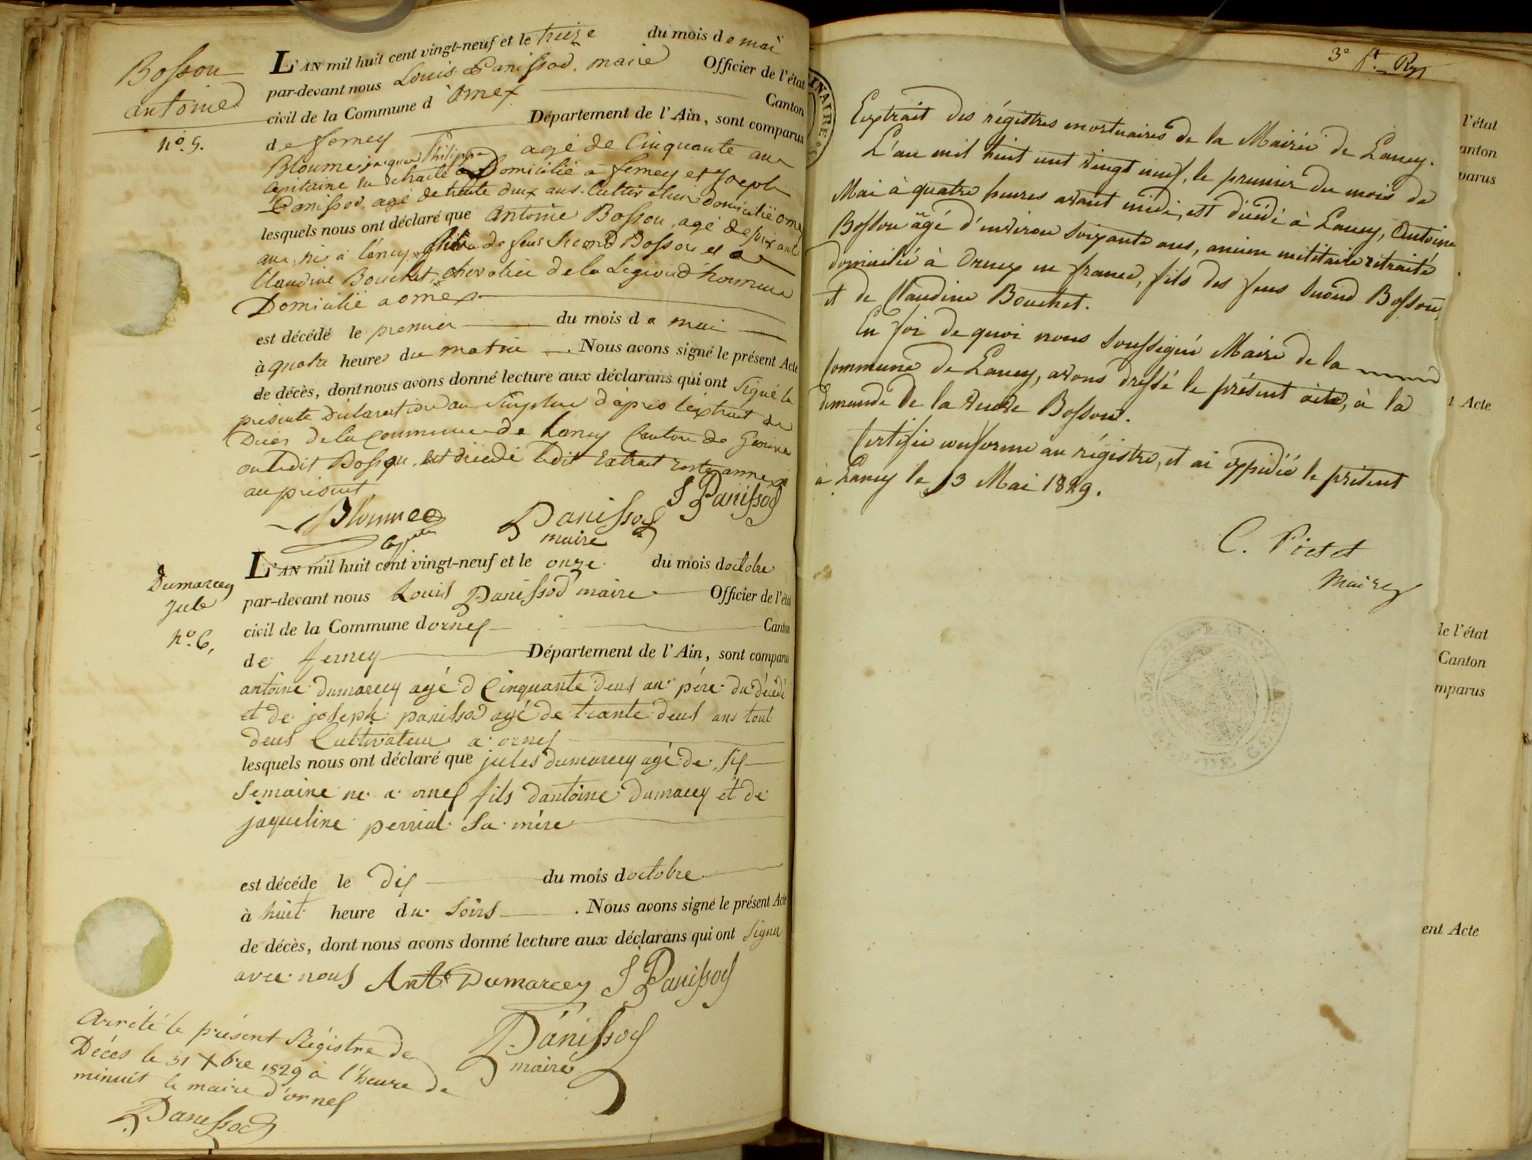 Bosson
antoine
n.o 5.
L'AN mil huit cent vingt-neuf et le treize du mois de mai
par-devant nous Louis Panissod, maire Officier de l'état
civil de la Commune d'Ornex Canton
de ferney Département de l'Ain, sont comparus
Bloume jaque Philippe agé de Cinquante ans
Capitaine en retraite Domicilié a ferney et Joseph
Panissod agé de trente deux ans. Cultivateur domicilié ornex
lesquels nous ont déclaré que Antoine Bosson, agé de soixante
ans, né à lancy, fils de feus Second Bosson et de
Claudine Bouchet, chevalier de la Legion d'honneur
Domicilié a ornex
est décédé le premier du mois de mai
à quatre heures du matin. Nous avons signé le présent Acte
de décès, dont nous avons donné lecture aux déclarans qui ont signé la
presente Declaration d'apres l'extrait de
Deces de la commune de Lancy Canton de Geneve
ou ledit Bosson est décédé ledit Extrait reste annexé
au présent
Bloume
Capne
Panissod
maire
J Panissod
Dumarcey
Jule
n.o 6,
L'AN mil huit cent vingt-neuf et le onze du mois d'octobre
par-devant nous Louis Panissod maire Officier de l'état
civil de la Commune d'ornex Canton
de ferney Département de l'Ain, sont comparus
antoine dumarcey agé d Cinquante deus an père du décédé
et de joseph panissod agé de trante deus ans tout
deus Cultivateur a ornex
lesquels nous ont déclaré que jules dumarcey agé de six
semaine né a ornex fils d'antoine dumarcey et de
jaqueline perrial sa mère
est décédé le dix du mois d'octobre
à huit heure du soirs. Nous avons signé le présent Acte
de décès, dont nous avons donné lecture aux déclarans qui ont signer
avec nous Ant. Dumarcey J Panissod
Panissod
maire
Arrêté le présent Régistre de
Décés le 31 Xbre 1829 a l'heure de
minuit le maire d'ornex
Panissod
3e
Extrait des régistres mortuaires de la Mairie de Lancy.
L'an mil huit cent vingt neuf, le premier du mois de
Mai à quatre heures avant midi, est décédé à Lancy, Antoine
Bosson âgé d'environ soixante ans, ancien militaire retraité
domicilié à Ornex en france, fils des feus Second Bosson,
et de Claudine Bouchet.
En foi de quoi nous soussigné Maire de la
Commune de Lancy, avons dressé le présent acte, à la
demande de la veuve Bosson.
Certifié conforme au régistre, et ai expédié le présent
à Lancy le 13 Mai 1829.
C. Pictet
Maire
l'état
anton
parus
t Acte
de l'état
Canton
mparus
ent Acte